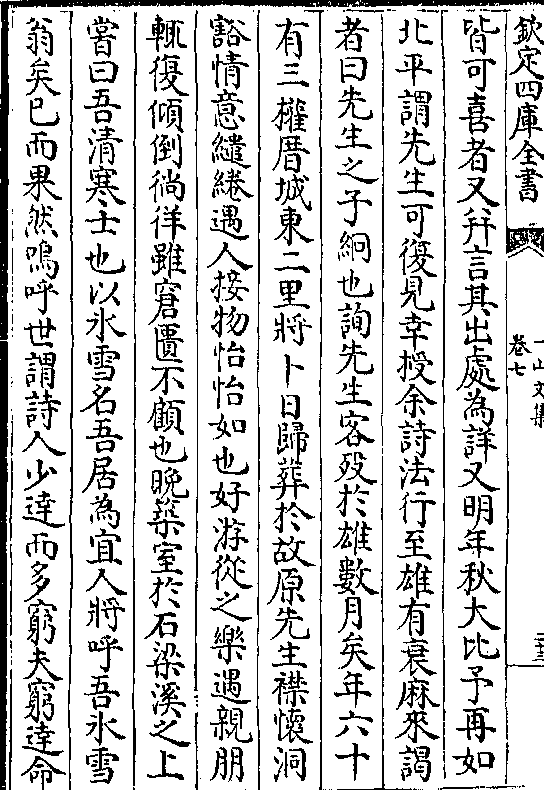 欽定四庫全書
一山文集
卷七
二十三
皆可喜者又并言其出處為詳又明年秋大比予再如
北平謂先生可復見幸授余詩法行至雄有衰麻來謁
者曰先生之子絅也詢先生客歿於雄數月矣年六十
有三權厝城東二里將卜日歸葬於故原先生襟懷洞
豁情意繾綣遇人接物怡怡如也好游從之樂遇親朋
輒復傾倒徜徉雖窘匱不顧也晚築室於石梁溪之上
嘗曰吾清寒士也以氷雪名吾居為宜人將呼吾氷雪
翁矣已而果然嗚呼世謂詩人少逹而多窮夫窮逹命